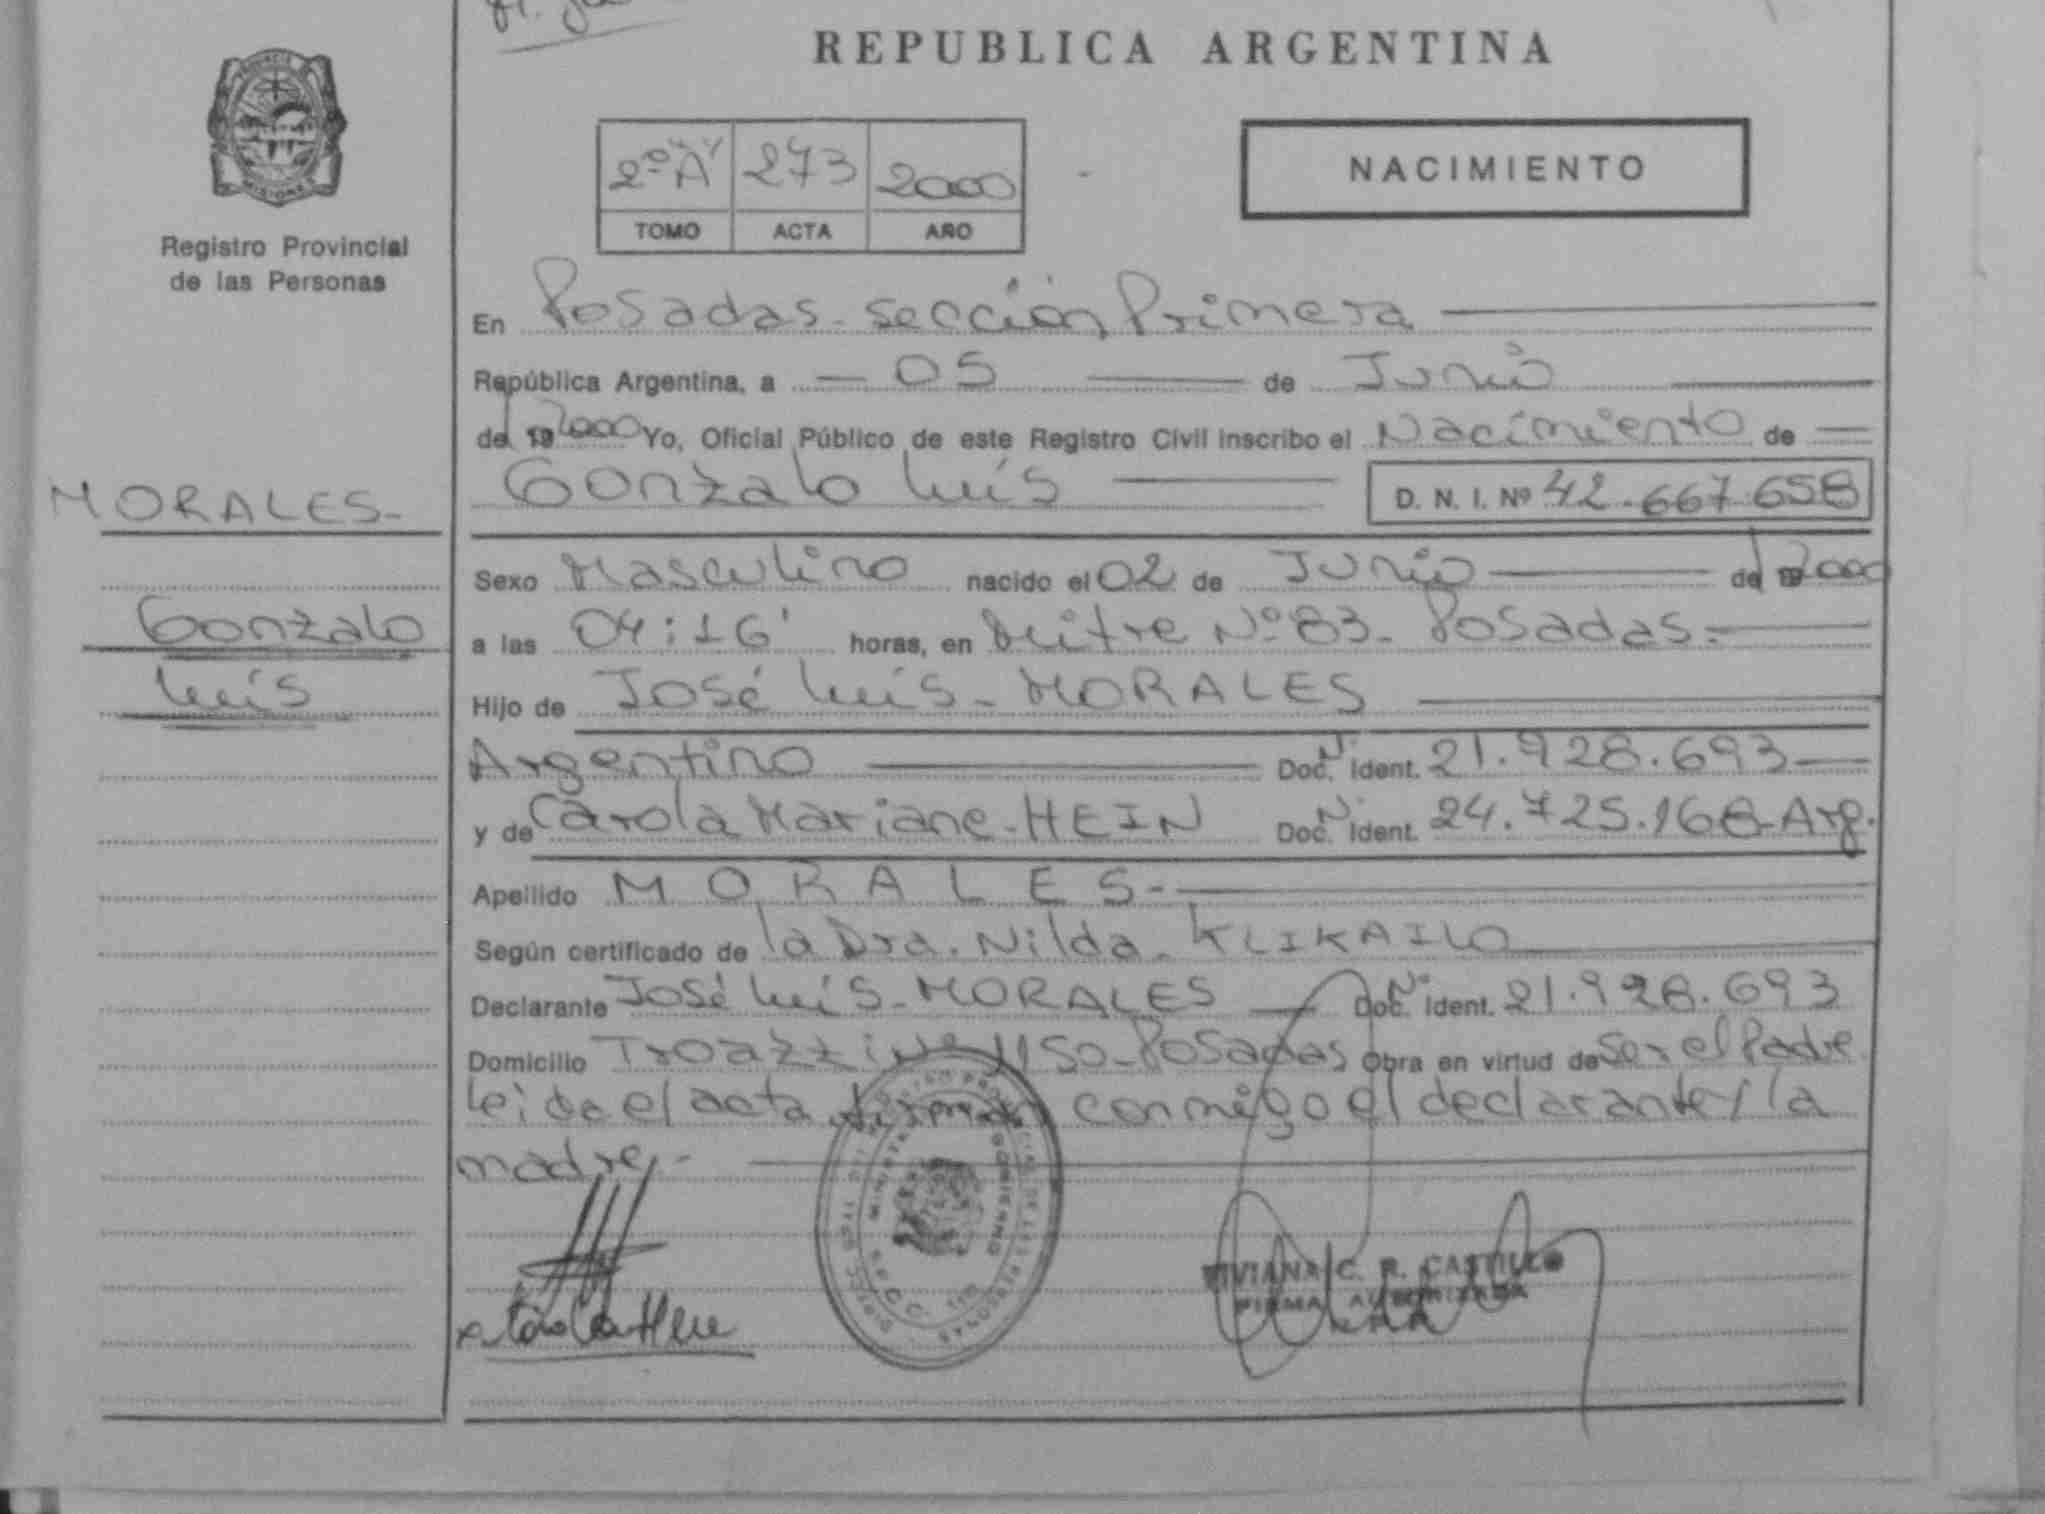 REPUBLICA ARGENTINA
PROVINCIA
MISIONES
Registro Provincial
de las Personas
2º "A" 273 2000
TOMO ACTA AÑO
NACIMIENTO
En Posadas - sección Primera
República Argentina, a — 05 — de Junio
de 19 2000 Yo, Oficial Público de este Registro Civil inscribo el Nacimiento de —
Gonzalo Luis D. N. I. Nº 42.667.658
MORALES-
Gonzalo
Luis
Sexo Masculino nacido el 02 de Junio — de 19 2000
a las 04:16' horas, en Mitre Nº 83 - Posadas -
Hijo de José Luis - MORALES
Argentino Doc. N. Ident. 21.928.693
y de Carola Mariane - HEIN Doc. N. Ident. 24.725.168 - Arg.
Apellido MORALES-
Según certificado de la Dra. Nilda - KLIKAILO
Declarante José Luis - MORALES Doc. Nº Ident. 21.928.693
Domicilio 1150 - Posadas Obra en virtud de ser el Padre
Leida el acta firman conmigo el declarante y la
madre.-
VIVIANA C. R. CASTILLO
FIRMA AUTORIZADA